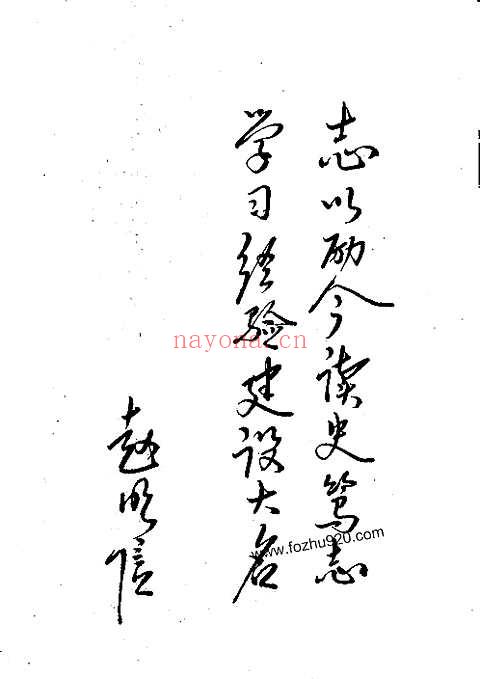 志以励今读史笃志
学习经验建设大名
赵明信
nayona.cn
www.fozhu920.com